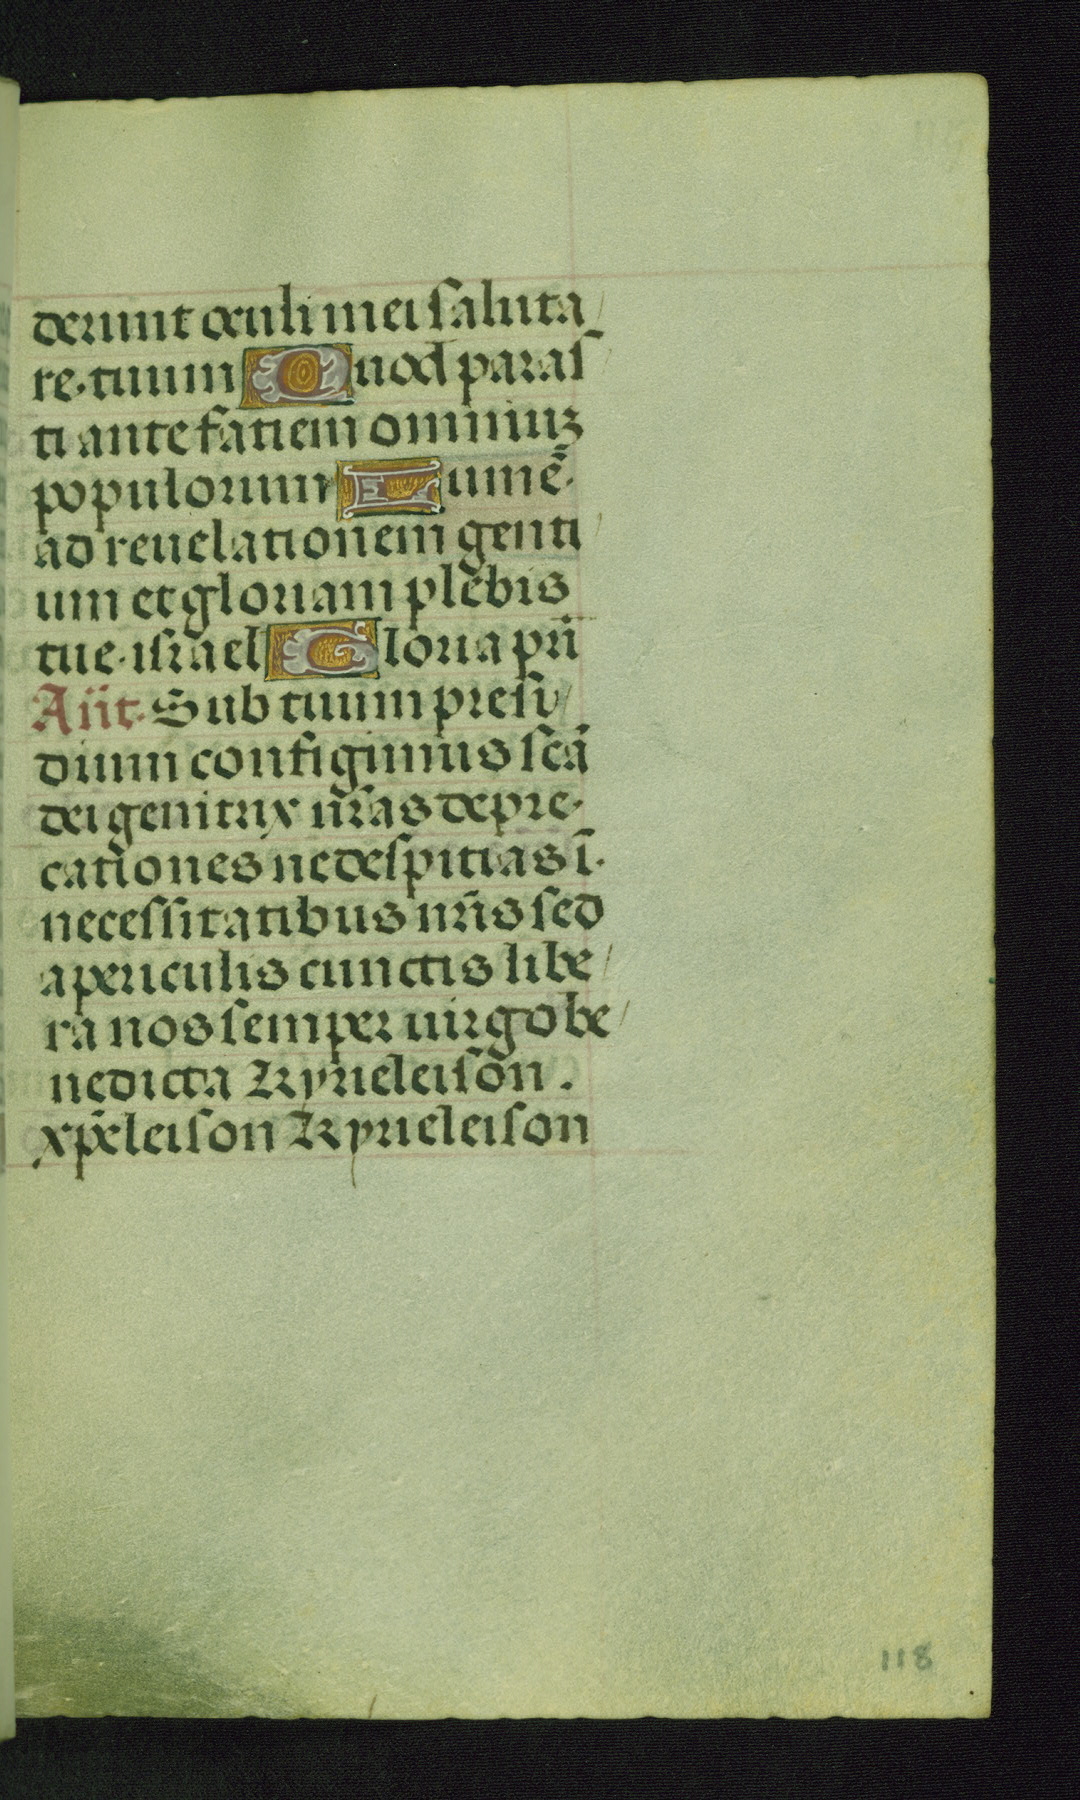 derunt oculi mei saluta
re tuum Quod paras
ti ante fatiem omniuz
populorum Lumē
ad reuelationem genti
um et gloriam plebis
tue israel Gloria pr̄i
An̄t. Sub tuum presi
dium confugimus scā
dei genitrix nr̄as depre
cationes ne despitias ī
necessitatibus nr̄is sed
a periculis cunctis libe
ra nos semper uirgo be
nedicta Kyrieleison.
xp̄eleison Kyrieleison
118